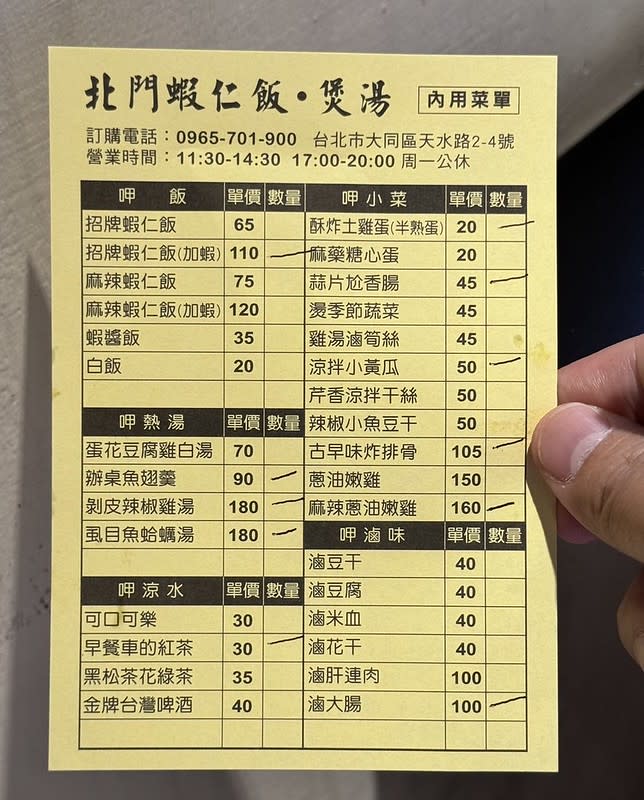 北門蝦仁飯・煲湯 內用菜單
訂購電話：0965-701-900 台北市大同區天水路2-4號
營業時間：11:30-14:30 17:00-20:00 周一公休
呷飯 單價 數量
招牌蝦仁飯 65
招牌蝦仁飯(加蝦) 110
麻辣蝦仁飯 75
麻辣蝦仁飯(加蝦) 120
蝦醬飯 35
白飯 20
呷熱湯 單價 數量
蛋花豆腐雞白湯 70
辦桌魚翅羹 90
剝皮辣椒雞湯 180
虱目魚蛤蠣湯 180
呷涼水 單價 數量
可口可樂 30
早餐車的紅茶 30
黑松茶花綠茶 35
金牌台灣啤酒 40
呷小菜 單價 數量
酥炸土雞蛋(半熟蛋) 20
麻藥糖心蛋 20
蒜片尬香腸 45
燙季節蔬菜 45
雞湯滷筍絲 45
涼拌小黃瓜 50
芹香涼拌干絲 50
辣椒小魚豆干 50
古早味炸排骨 105
蔥油嫩雞 150
麻辣蔥油嫩雞 160
呷滷味 單價 數量
滷豆干 40
滷豆腐 40
滷米血 40
滷花干 40
滷肝連肉 100
滷大腸 100